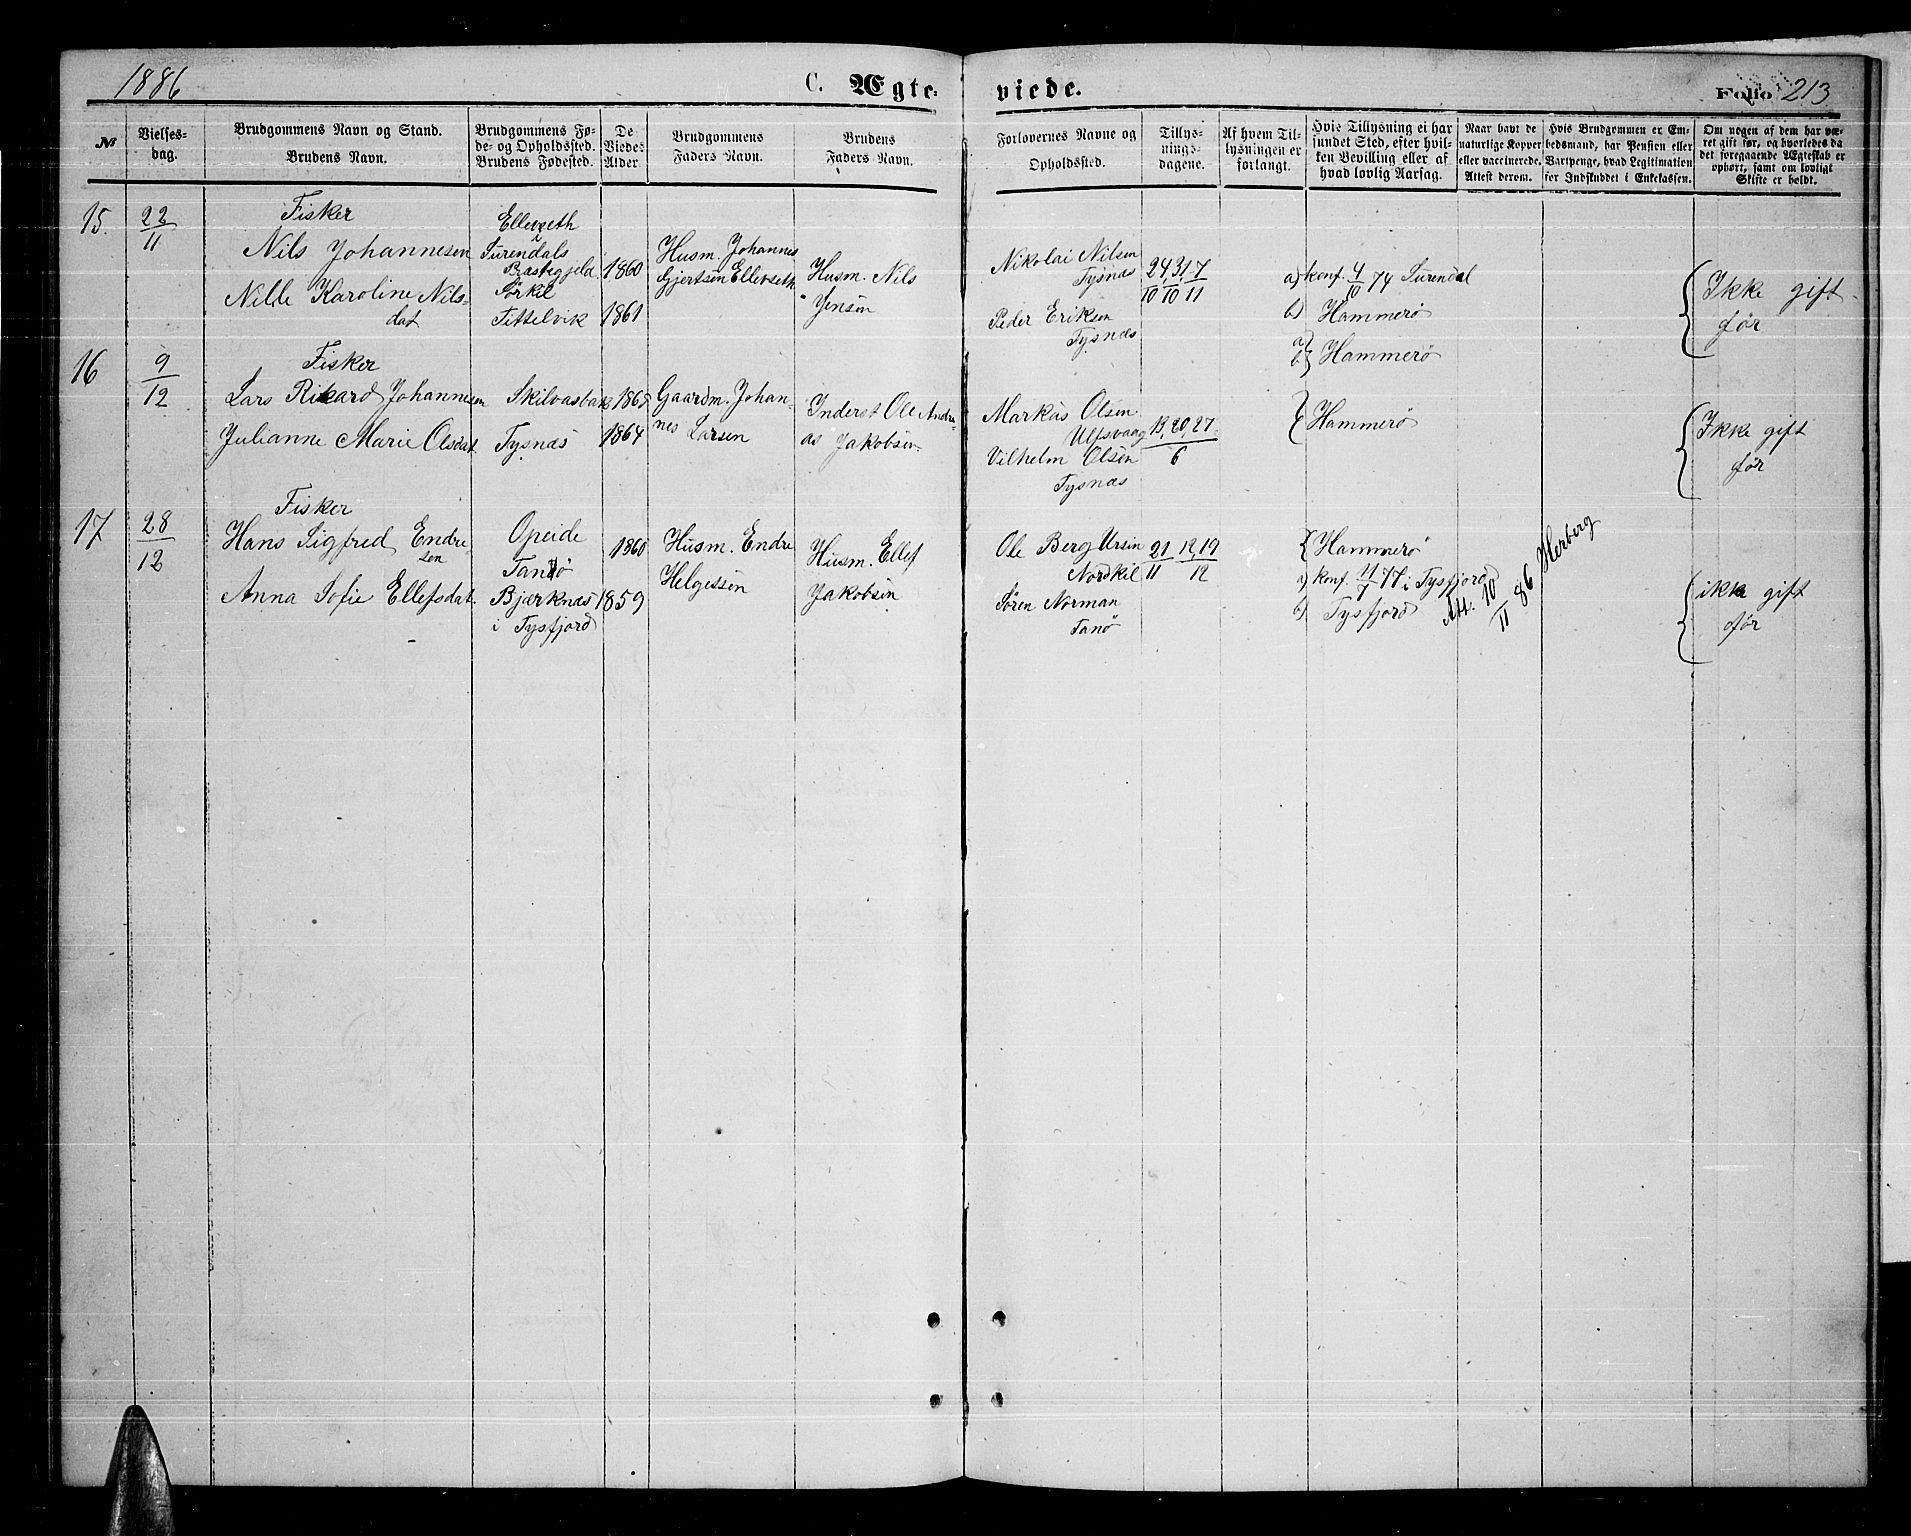 1886
C. Ægte-
viede.
Folio 213
№
Vielses-
dag.
Brudgommens Navn og Stand.
Brudens Navn.
Brudgommens Fø-
de- og Opholdssted.
Brudens Fødested.
De
Viedes
Alder.
Brudgommens
Faders Navn.
Brudens
Faders Navn.
Forlovernes Navne og
Opholdssted.
Tillys-
nings-
dagene.
Af hvem Til-
lysningen er
forlangt.
Hvis Tillysning ei har
fundet Sted, efter hvil-
ken Bevilling eller af
hvad lovlig Aarsag.
Naar havt de
naturlige Kopper
eller vaccinerede.
Attest derom.
Hvis Brudgommen er Em-
bedsmand, har Pension eller
Vartpenge, hvad Legitimation
for Indskuddet i Enkekassen.
Om nogen af dem har væ-
ret gift før, og hvorledes da
det foregaaende Ægteskab er
ophørt, samt om lovligt
Skifte er holdt.
15.
22
11
Fisker
Nils Johannesen
Nille Karoline Nils-
dat
Ellevseth
i
Surendals
Præstegjeld
Sørkil
Tittelvik
1860
1861
Husm. Johannes
Gjertsen Ellevseth
Husm. Nils
Jensen
Nikolai Nilsen
Tysnæs
Peder Eriksen
Tysnæs
24 31 7
10 10 11
a) konf. 4/10 74 Surendal
b) Hammerø
a
b} Hammerø
Ikke gift
før
16
9
12
Fisker
Lars Rikard Johannesen
Julianne Marie Olsdat
Skilvasbakk
Tysnæs
1865
1864
Gaardm. Johan-
nes Larsen
Inderst Ole Andre-
as Jakobsen
Markus Olsen
Ulfsvaag
Vilhelm Olsen
Tysnæs
13, 20, 27
6
Hammerø
Ikke gift
før
17
28
12
Fisker
Hans Sigfred Endre-
sen
Anna Sofie Ellefsdat.
Opeide
Tanø
Bjærknæs
i Tysfjord
1860
1859
Husm. Endre
Helgessen
Husm. Ellef
Jakobsen
Ole Berg Ursin
Nordkil
Søren Norman
Tanø
21 12, 19
11 12
{ Hammerø
a) konf. 11/7 77 i Tysfjord
b) Tysfjord
Att. 10/11 86 Herberg
ikke gift
før